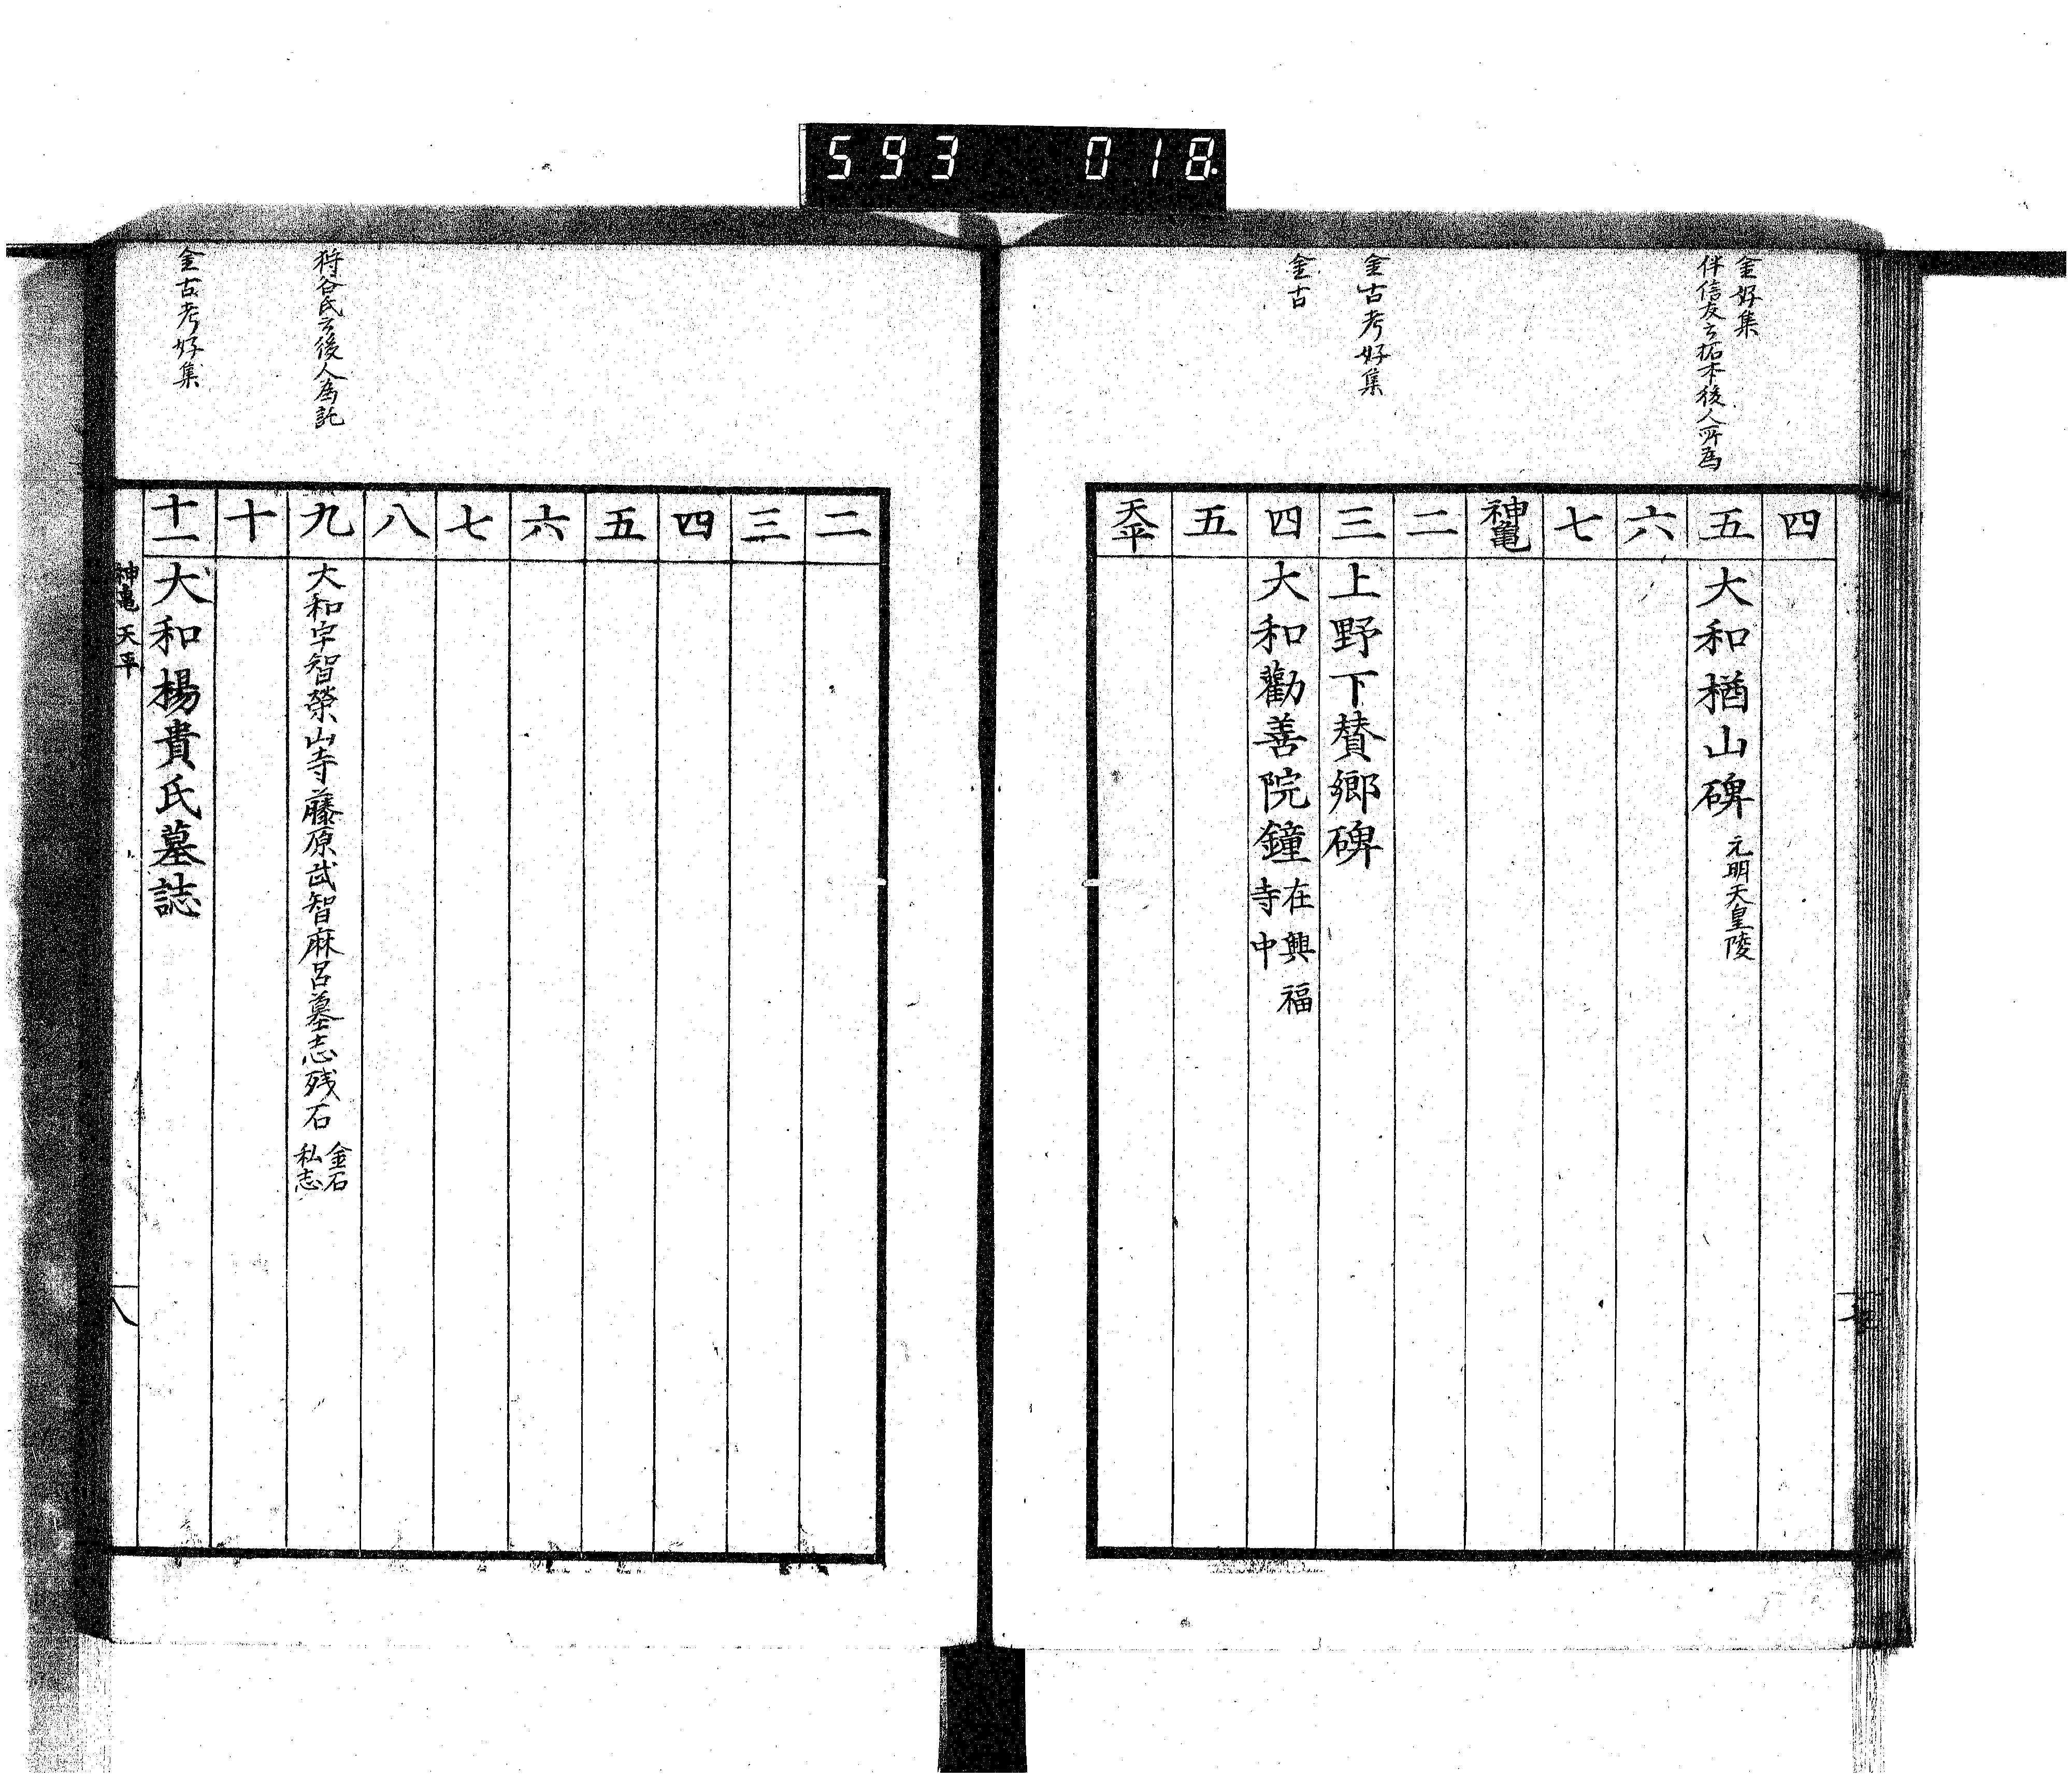 593 018
金好集
伴信友云拓本後人所為
金古考好集
金古
四
五 大和楢山碑 元明天皇陵
六
七
神龜
二
三 上野下賛郷碑
四 大和勸善院鐘 在興福
寺中
五
天平
狩谷氏云後人為託
金古考好集
二
三
四
五
六
七
八
九 大和宇智榮山寺藤原武智麻呂墓志残石 金石
私志
十
十一 大和楊貴氏墓誌
神龜 天平
八